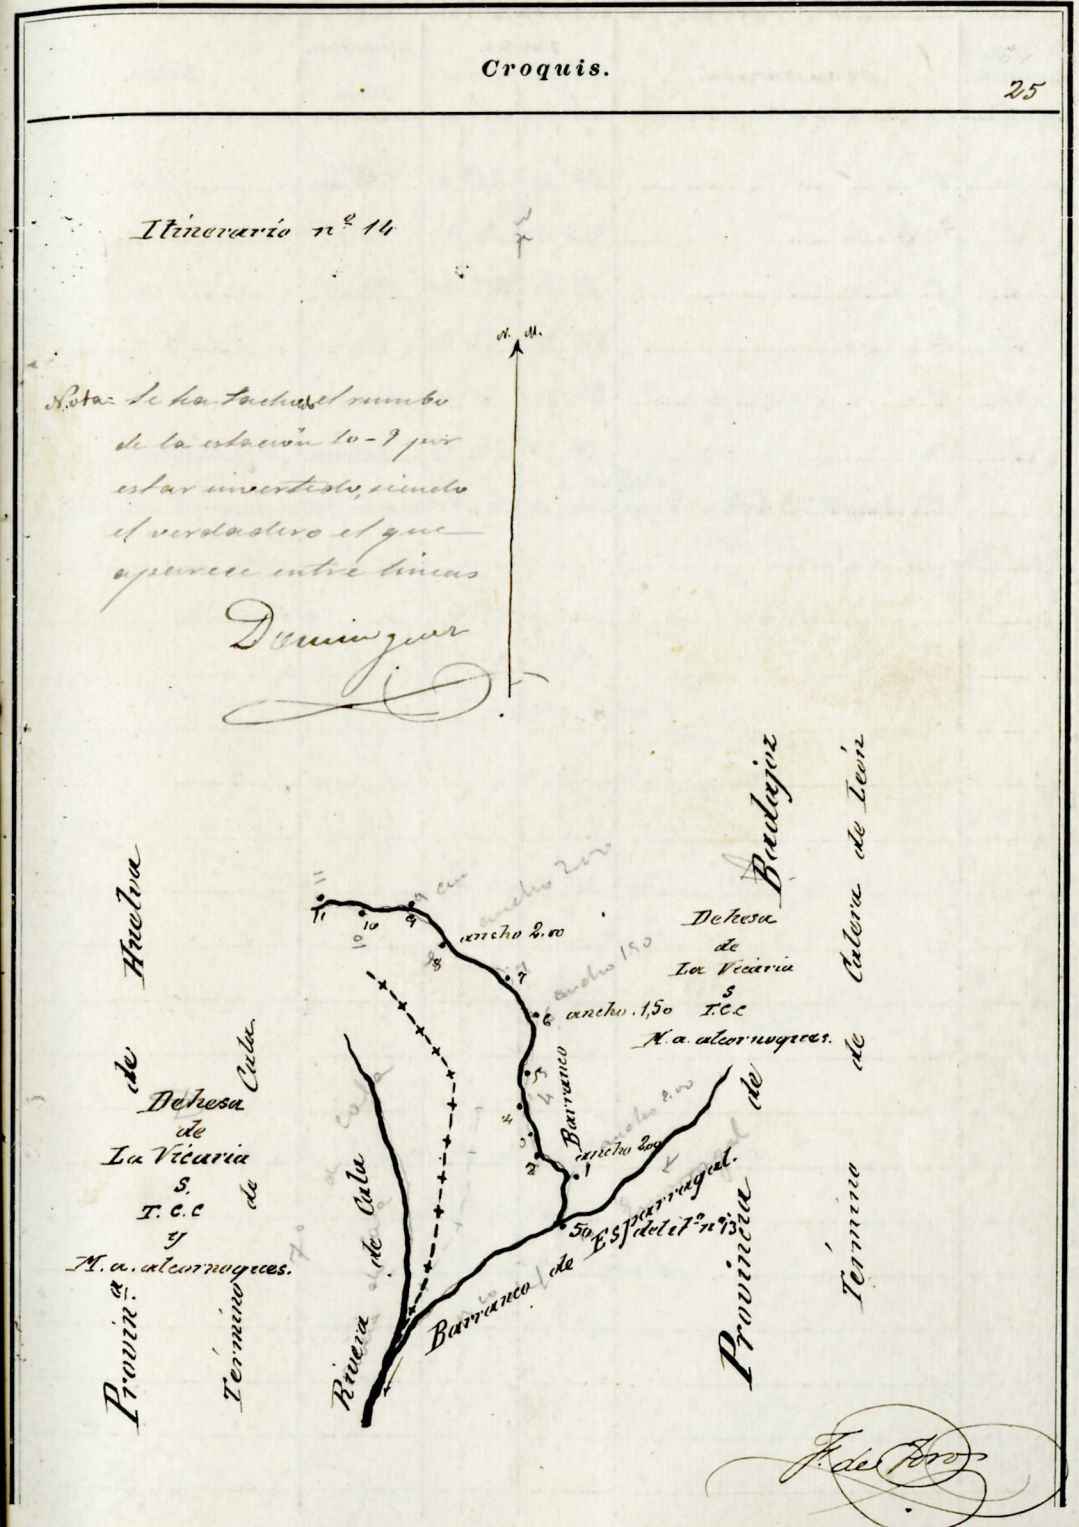 Croquis.
25
Itinerario nº 14
N. M.
Nota= Se ha tachado el rumbo
de la estación 10-9 por
estar invertido, siendo
el verdadero el que
aparece entre lineas
Dominguez
Provin.ª de Huelva
Término de Cala
Dehesa
de
La Vicaria
S.
T. C. C
y
M. a. alcornoques.
Rivera de Cala
11
10
9
8
7
6
5
4
3
2
1
ancho 2.00
ancho 1,50
Barranco
ancho 2.00
50 del itº nº 13
Barranco de Esparragal.
Dehesa
de
La Vicaria
S
T. C. C
M. a. alcornoques.
Provincia de Badajoz
Término de Calera de León
F. de Toro